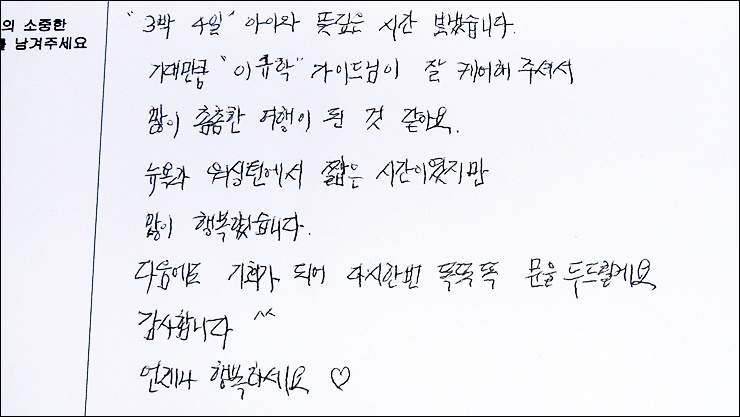 의 소중한
를 남겨주세요
"3박 4일" 아이와 뜻깊은 시간 보냈습니다.
기대만큼 "이규학" 가이드님이 잘 케어해 주셔서
많이 춤춤한 여행이 된 것 같아요.
뉴욕과 워싱턴에서 짧은 시간이었지만
많이 행복했습니다.
다음에도 기회가 되어 다시한번 똑똑똑 문을 두드릴게요
감사합니다 ^^
언제나 행복하세요 ♡